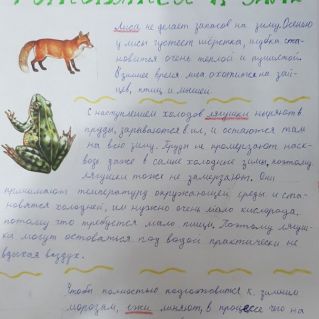 готовятся к зиме
Лиса не делает запасов на зиму. Осенью
у лисы густеет шёрстка, шубка ста-
новится очень теплой и пушистой
В зимнее время лиса охотится на зай-
цев, птиц и мышей.
С наступлением холодов лягушки ныряют в
пруды, зарываются в ил, и остаются там
на всю зиму. Пруды не промерзают нас-
возь даже в самые холодные зимы, поэтому
лягушки тоже не замерзают. Они
принимают температуру окружающей среды и ста-
новятся холодней, им нужно очень мало кислорода,
потому что требуется мало пищи. Поэтому лягуш-
ка могут оставаться под водой практически не
вдыхая воздух.
Чтобы полностью подготовится к зимним
морозам, ежи линяют, в процессе чего на